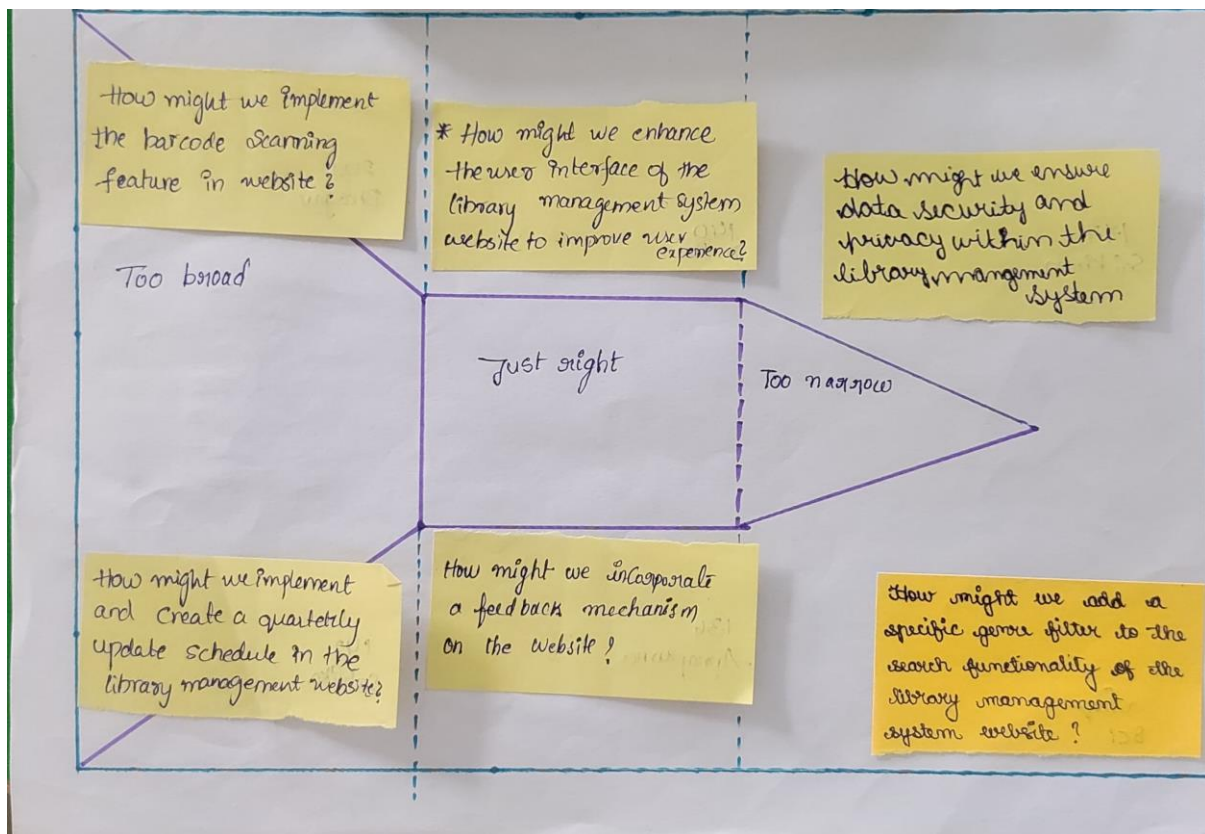 How might we implement
the barcode scanning
feature in website?
* How might we enhance
the user interface of the
library management system
website to improve user
experience?
How might we ensure
data security and
privacy within the
library mangement
system
Too broad
Just right
Too narrow
How might we implement
and create a quarterly
update schedule in the
library management website?
How might we incorporate
a feedback mechanism
on the website?
How might we add a
specific genre filter to the
search functionality of the
library management
system website?